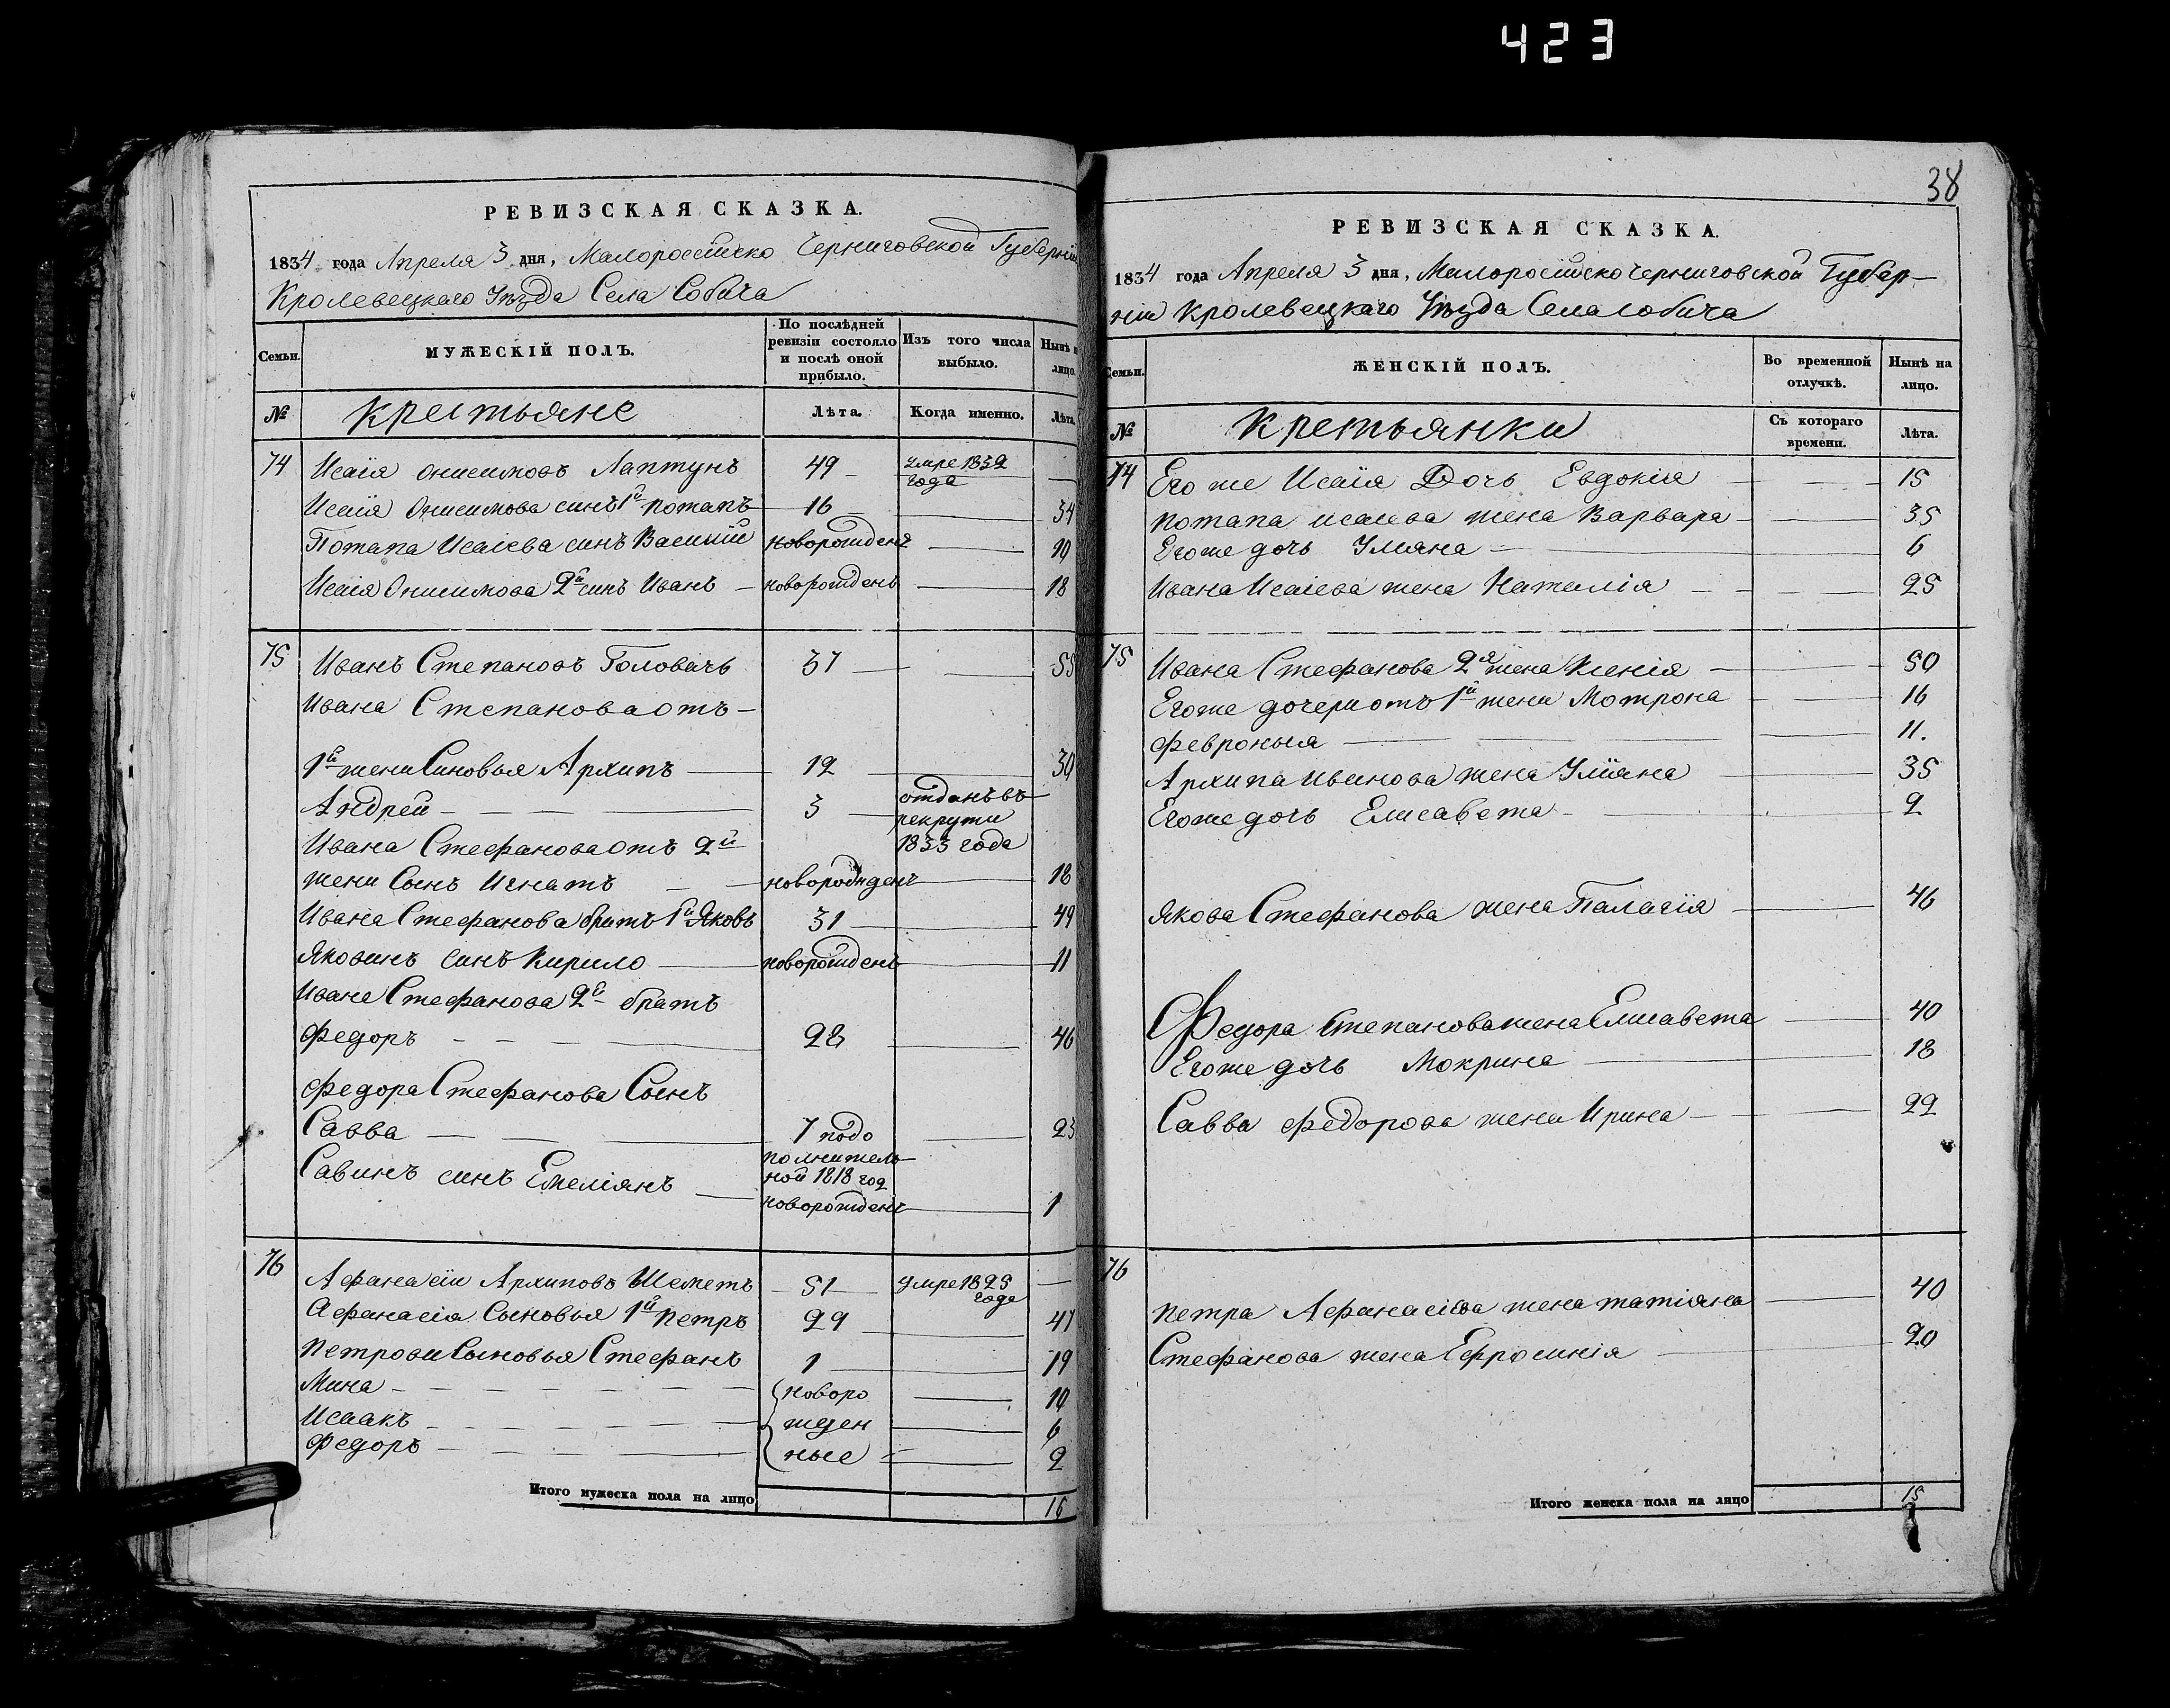 423
РЕВИЗСКАЯ СКАЗКА.
1834 года Апреля 3 дня, Малороссійско Черниговской Губерніи
Кролевецкаго Уѣзда Села Собича
Семьи. МУЖЕСКІЙ ПОЛЪ. По послѣдней ревизіи состояло и послѣ оной прибыло. Изъ того числа выбыло. Нынѣ на лицо.
№ Крестьяне Лѣта. Когда именно. Лѣта.
74 Исаія Онисимовъ Лаптунъ 49 умре 1832 года
Исаія Онисимова синъ 1й Потапъ 16 34
Потапа Исаіева синъ Василий новорожденъ 10
Исаія Онисимова 2й синъ Иванъ новорожденъ 18
75 Иванъ Степановъ Головачъ 37 55
Ивана Степанова отъ
1й жени Синовья Архипъ 12 30
Андрей 3 отданъ въ рекрути 1833 года
Ивана Стефанова отъ 2й
жени Сынъ Игнатъ новорожденъ 18
Ивана Стефанова братъ 1й Яковъ 31 49
Яковинъ синъ Кирило новорожденъ 11
Ивана Стефанова 2й братъ
Федоръ 28 46
Федора Стефанова Сынъ
Савва 7 по до 23
полнитель
ной 1818 год
Савинъ синъ Емеліянъ новорожденъ 1
76 Афанасіи Архиповъ Шеметъ 51 умре 1825 года
Афанасія Сыновья 1й Петръ 29 47
Петрови Сыновья Стефанъ 1 19
Мина новоро 10
Исаакъ жден 6
Федоръ ные 2
Итого мужеска пола на лицо 16
38
РЕВИЗСКАЯ СКАЗКА.
1834 года Апреля 3 дня, Малоросійско Черниговской Губер-
ніи Кролевецкаго Уѣзда Села Собича
Семьи. ЖЕНСКІЙ ПОЛЪ. Во временной отлучкѣ. Нынѣ на лицо.
№ Кретьянки Съ котораго времени. Лѣта.
74 Его же Исаія Дочь Евдокія 15
Потапа Исаева жена Варвара 35
Его же дочь Уляна 6
Ивана Исаіева жена Наталія 25
75 Ивана Стефанова 2я жена Ксенія 50
Его же дочери отъ 1й жени Мотрона 16
Февроныя 11.
Архипа Иванова жена Уліяна 35
Его же дочь Елисавета 2
Якова Стефанова жена Палагія 46
Федора Степанова жена Елисавета 40
Его же дочь Мокрина 18
Савва Федорова жена Ирина 22
76
Петра Афанасіева жена татіяна 40
Стефанова жена Ефросинія 20
Итого женска пола на лицо 15